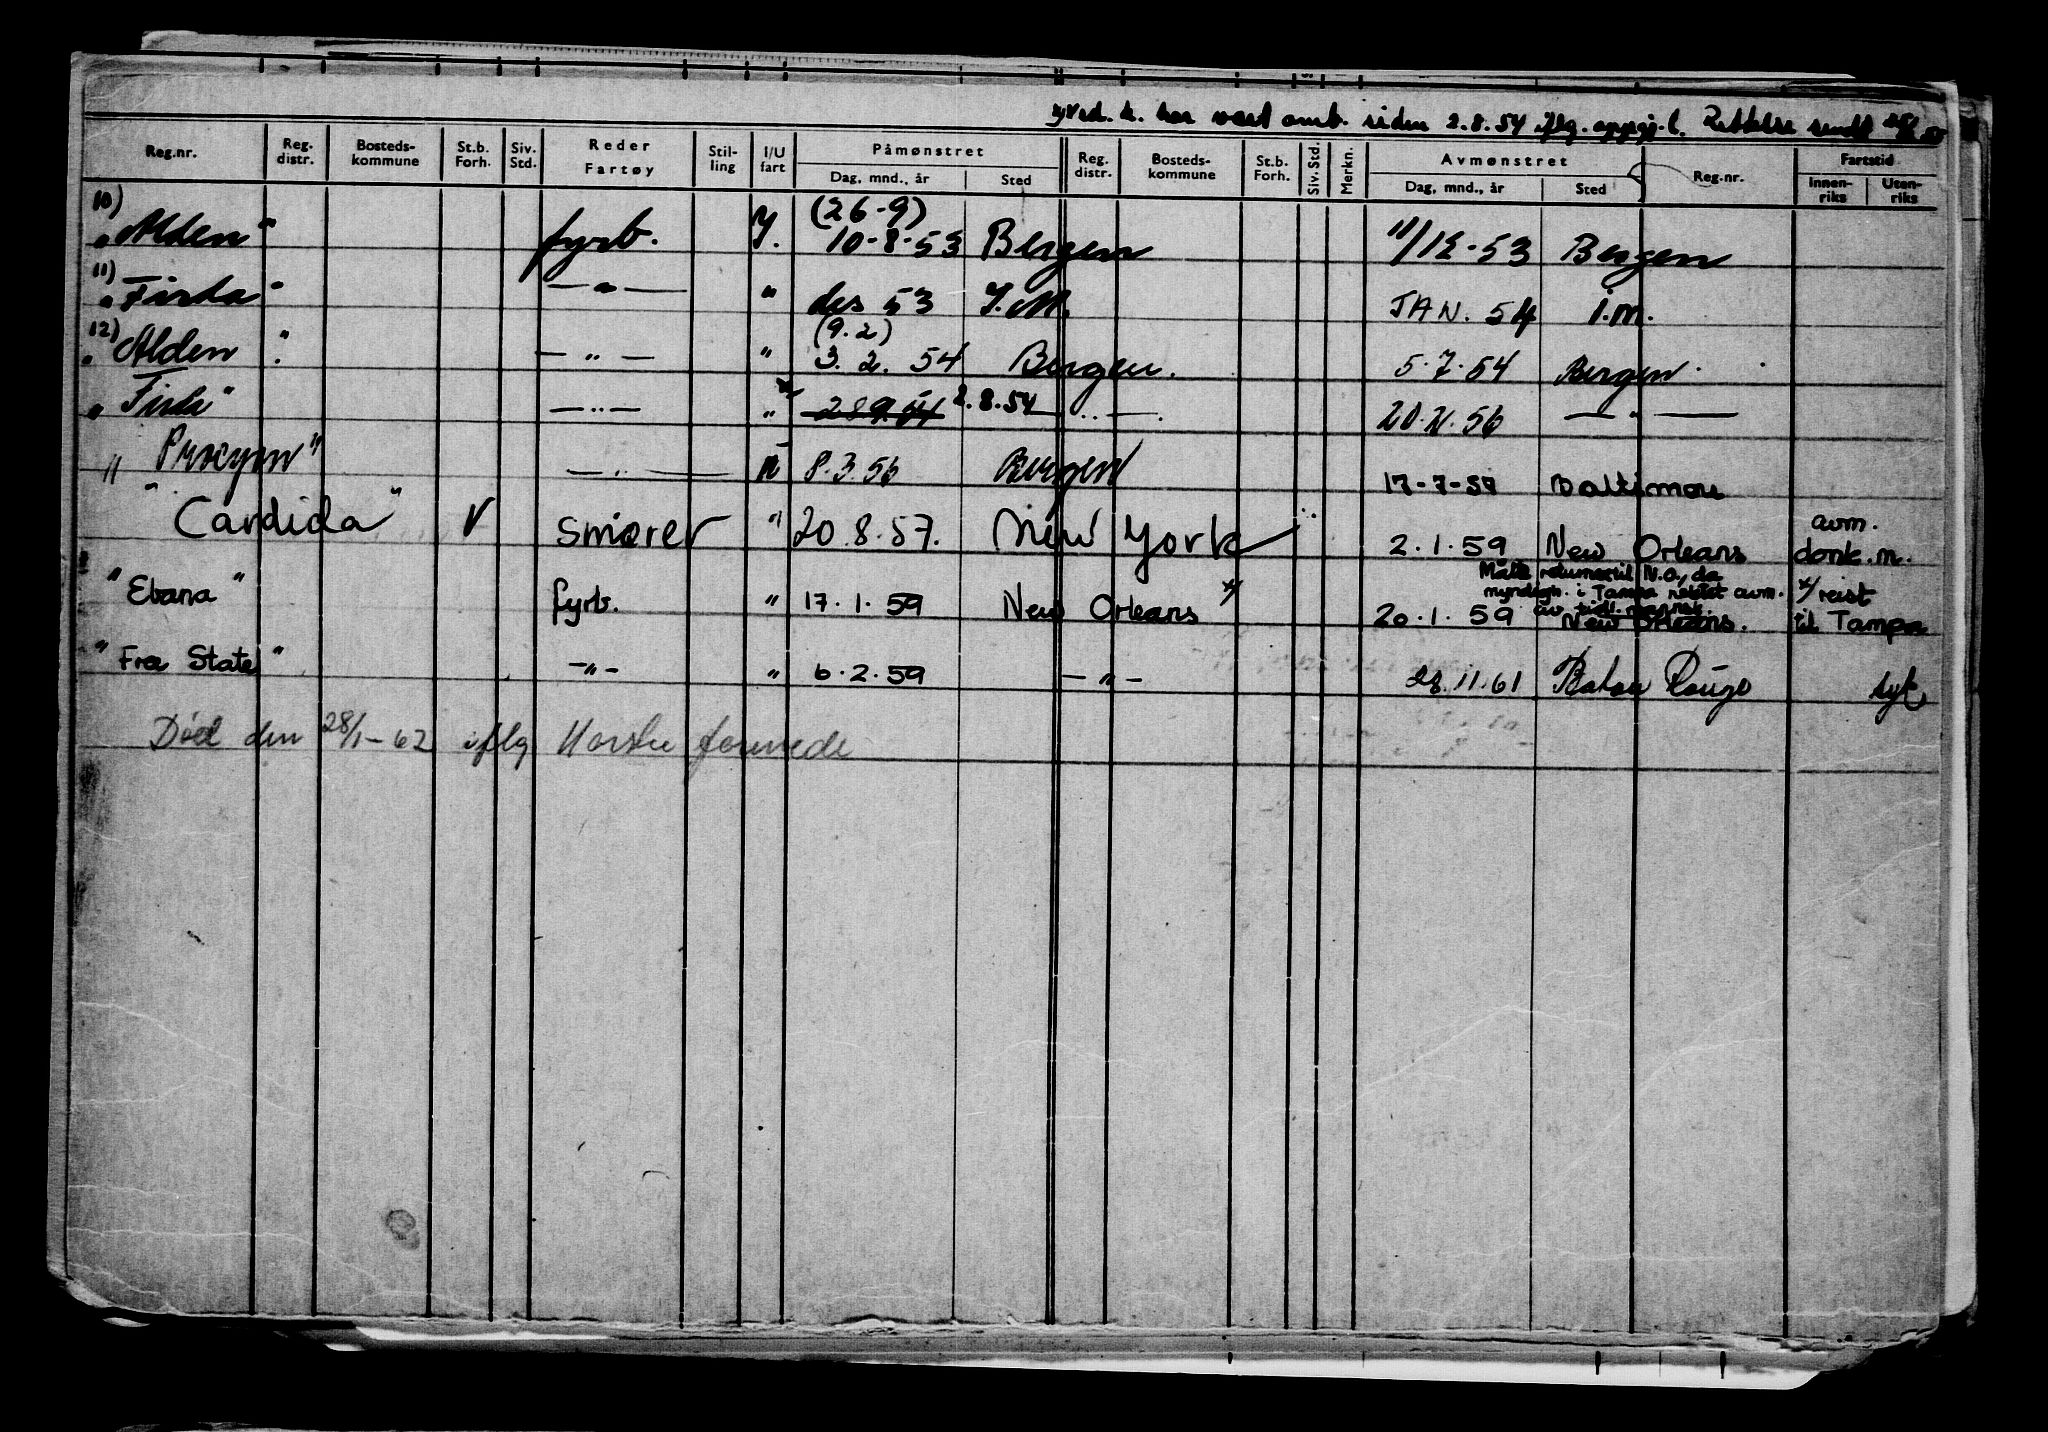 x) ved. k. har vært omb. siden 2.8.54 iflg. oppgj. l. Rettelse sendt
Reg.nr. Reg. distr. Bosteds- kommune St.b. Forh. Siv. Std. Reder Fartøy Stil- ling I/U fart Påmønstret Dag, mnd., år Sted Reg. distr. Bosteds- kommune St.b. Forh. Siv. Std. Merkn. Avmønstret Dag, mnd., år Sted Reg.nr. Fartstid Innen- riks Uten- riks
10) (26-9)
"Alden" fyrb. I. 10-8-53 Bergen 11/12-53 Bergen
11)
"Firda" — " — " des 53 I.M. JAN. 54 i.m.
12) (9.2)
"Alden" — " — " 3.2.54 Bergen. 5.7.54 Bergen.
"Firda" — " — " x 28.9.54 2.8.54 — " —. 20.2.56 — " —
"Procyon" — " — U 8.3.56 Bergen 17-7-57 Baltimore
"Candida" V smører " 20.8.57. New York 2.1.59 New Orleans avm. donk.m.
Måtte returnere til N.O., da
myndigh. i Tampa nektet avm.
"Ebana" fyrb. " 17.1.59 New Orleans x) 20.1.59 New Orleans. x) reist til Tampa
"Free State" — " — " 6.2.59 — " — 28.11.61 Baton Rouge syk
Død den 28/1-62 iflg Norske